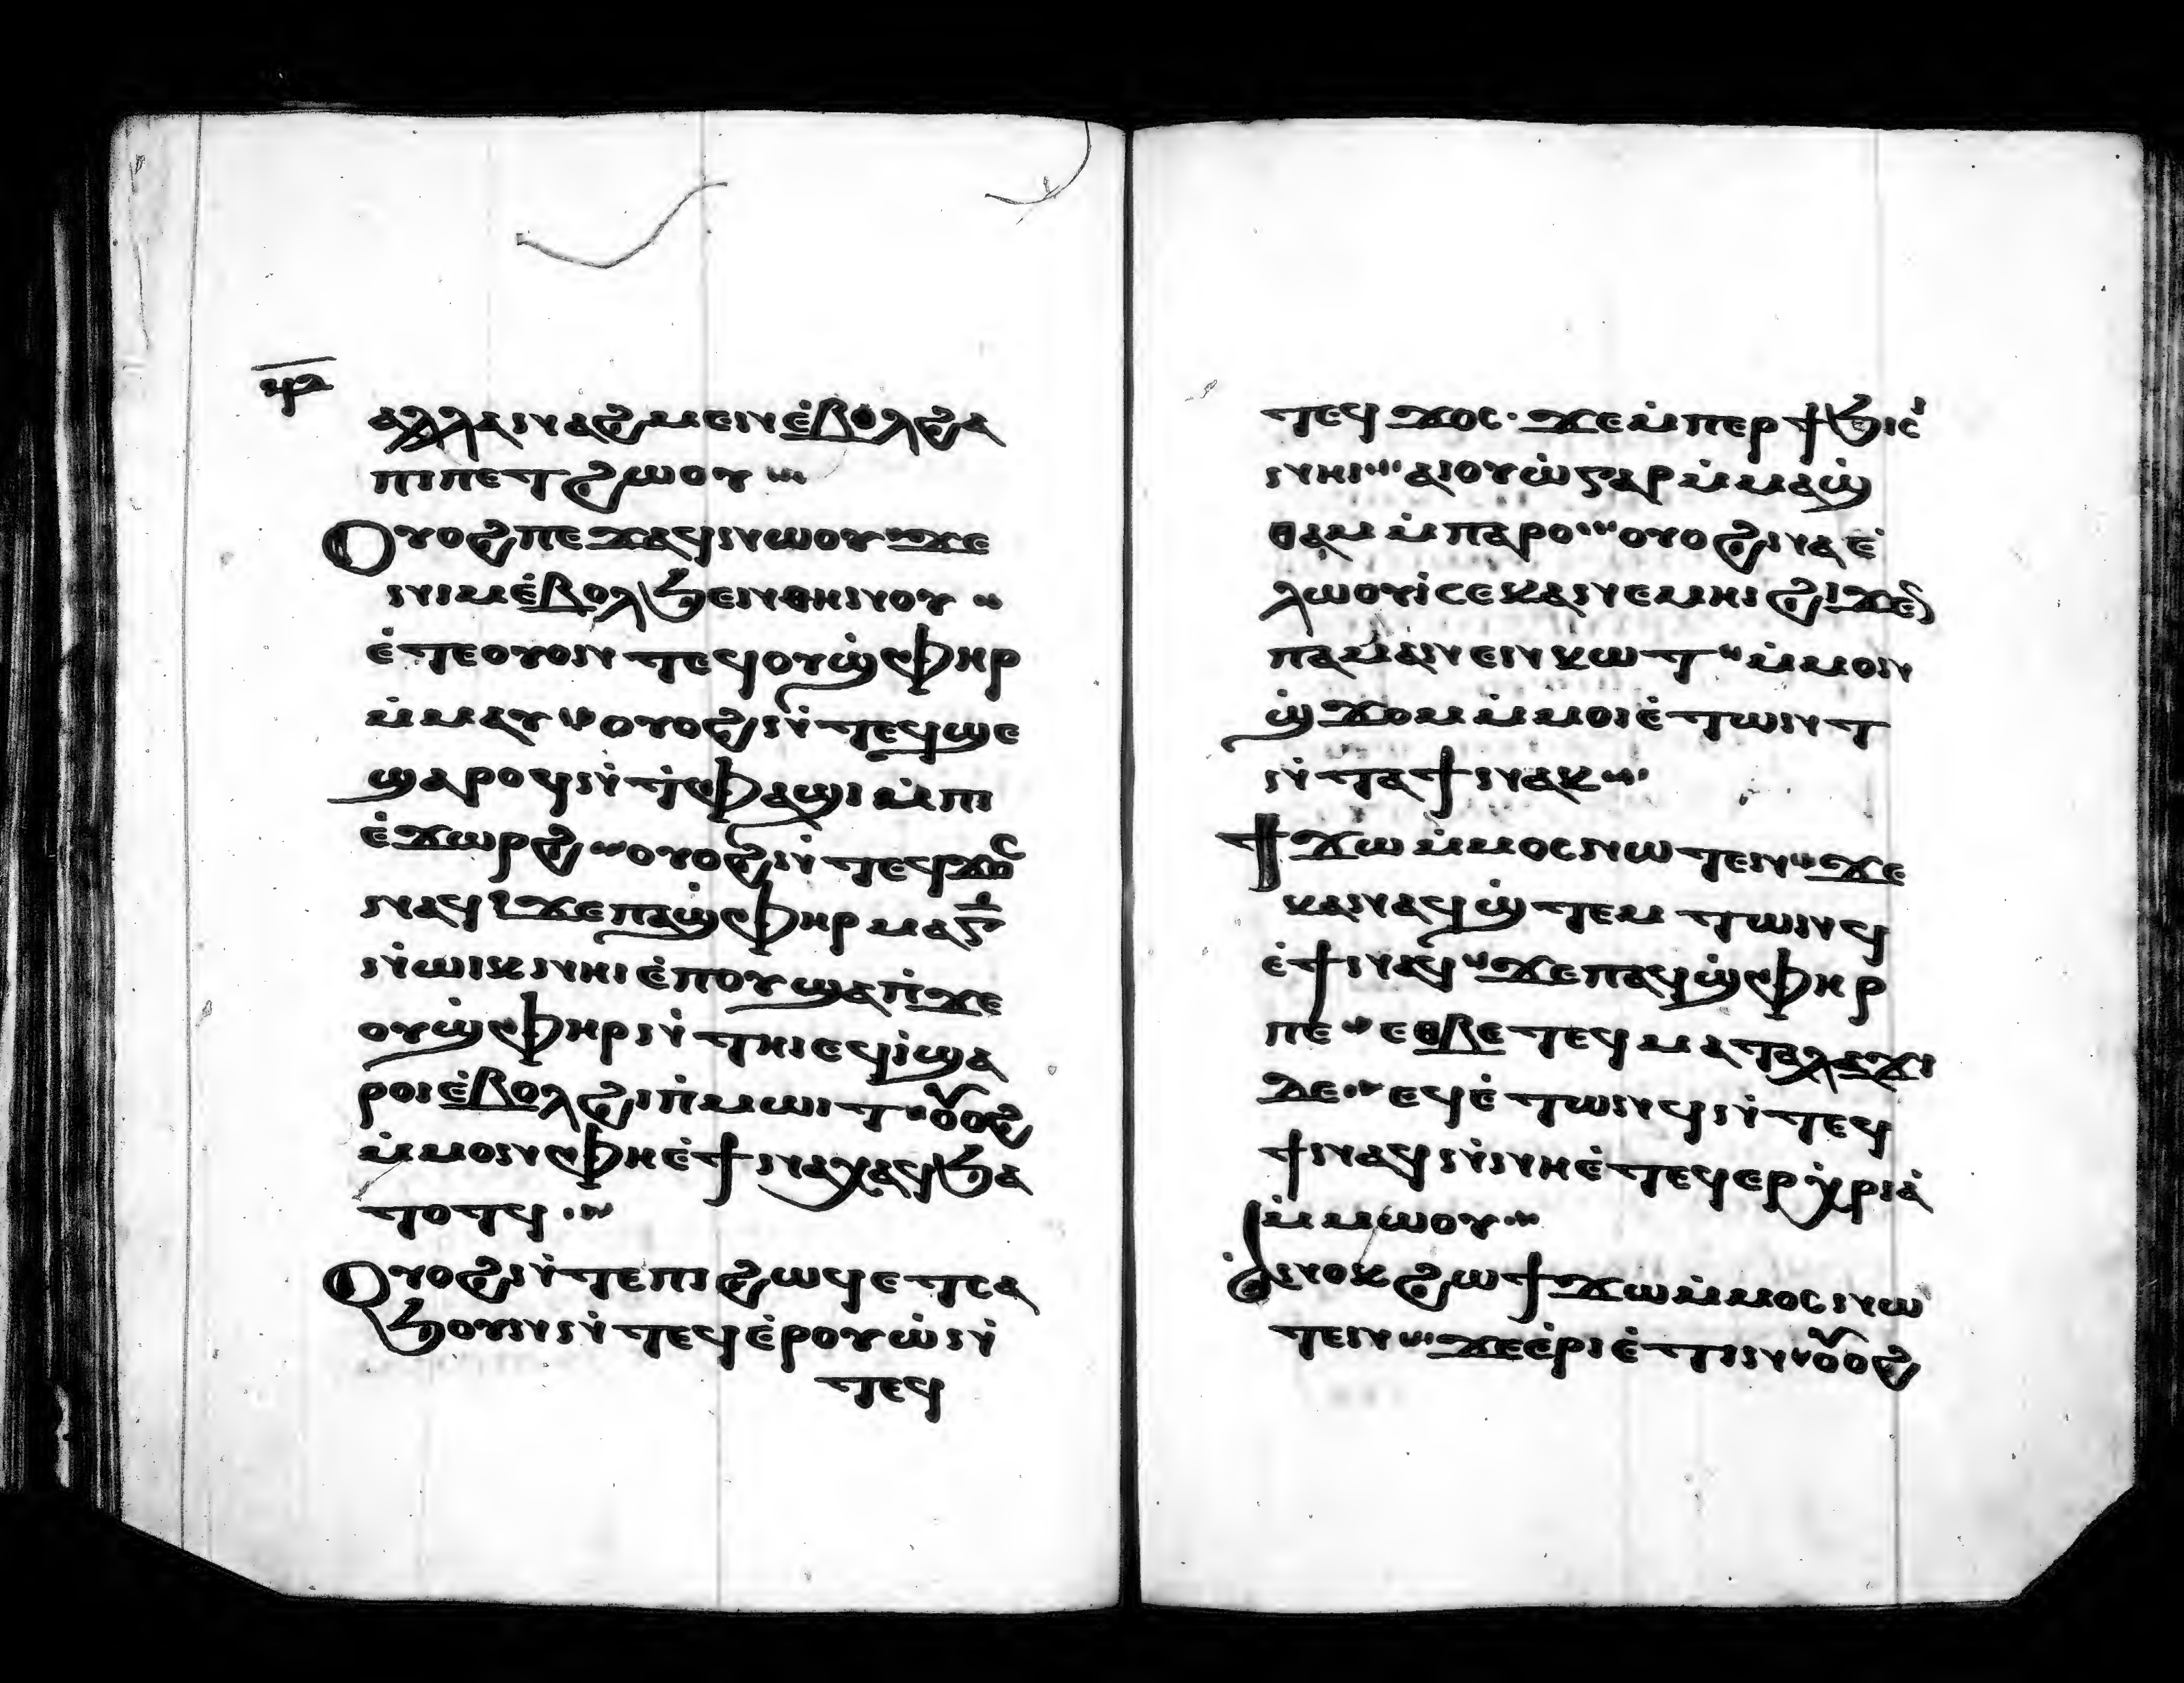 ϥⲁ
ⲁⲗⲗⲁⲛⲁϩⲙⲉⲛⲉ̇ⲃⲟⲗϩⲁ
ⲡⲓⲡⲉⲧϩⲱⲟⲩ
Ⲟⲩⲟϩⲡⲉϫⲁϥⲛⲱⲟⲩϫⲉ
ⲛⲓⲙⲉ̇ⲃⲟⲗϧⲉⲛⲑⲏⲛⲟⲩ
ⲉ̇ⲧⲉⲟⲩⲟⲛⲧⲉϥⲟⲩϣ̇ⲫⲏⲣ
ⲙ̇ⲙⲁⲩⲟⲩⲟϩⲛ̇ⲧⲉϥϣⲉ
ϣⲁⲣⲟϥⲛ̇ⲧ̇ⲫⲁϣⲓⲙ̇ⲡⲓ
ⲉ̇ϫⲱⲣϩⲟⲩⲟϩⲛ̇ⲧⲉϥϫⲟⲥ
ⲛⲁϥϫⲉⲡⲁϣ̇ⲫⲏⲣⲙⲁⲅ̅
ⲛ̇ⲱⲓⲕⲛⲏⲓⲉ̇ⲡⲟⲩϣⲁⲡ̇ϫⲉ
ⲟⲩϣ̇ⲫⲏⲣⲛ̇ⲧⲏⲓⲉϥⲓ̇ϣⲁ
ⲣⲟⲓⲉ̇ⲃⲟⲗϩⲓⲡ̇ⲙⲱⲓⲧⲟⲩⲟϩ
ⲙ̇ⲙⲟⲛⲫⲏⲉ̇ϯⲛⲁⲭⲁϥϧⲁ
ⲧⲟⲧϥ
Ⲟⲩⲟϩⲛ̇ⲧⲉⲡⲓϩⲱϥⲉⲧⲥⲁ
ϧⲟⲩⲛⲛ̇ⲧⲉϥⲉ̇ⲣⲟⲩⲱ̇ⲛ̇
ⲧⲉϥ
ⲧⲉϥϫⲟⲥ·ϫⲉⲙ̇ⲡⲉⲣϯϧⲓⲥⲓ
ⲛⲏⲓⲁⲓⲟⲩⲱ̇ⲅⲁⲣⲙ̇ⲙⲁϣ̇
ⲑⲁⲙⲙ̇ⲡⲁⲣⲟⲟⲩⲟϩⲛⲁⲉ̇
ⲗⲱⲟⲩⲓ̇ⲥⲉⲕⲁⲛⲉⲙⲏⲓϩⲓϫⲉⲛ
ⲡⲁⲙⲁⲛⲉⲛⲕⲱⲧⲙ̇ⲙⲟⲛ
ϣ̇ϫⲟⲙⲙ̇ⲙⲟⲓⲉ̇ⲧⲱⲛⲧ
ⲛ̇ⲧⲁϯⲛⲁⲕ
Ϯϫⲱⲙ̇ⲙⲟⲥⲛⲱⲧⲉⲛϫⲉ
ⲕⲁⲛⲁϥϣ̇ⲧⲉⲙⲧⲱⲛϥ
ⲉ̇ϯⲛⲁϥϫⲉⲡⲁϥϣ̇ⲫⲏⲣ
ⲡⲉⲉⲑⲃⲉⲧⲉϥⲙⲁⲧⲁⲗⲁϫⲓ
ϫⲉⲉϥⲉ̇ⲧⲱⲛϥⲛ̇ⲧⲉϥ
ϯⲛⲁϥⲛ̇ⲛⲏⲉ̇ⲧⲉϥⲉⲣⲭ̇ⲣⲓⲁ̇
ⲙ̇ⲙⲱⲟⲩ
Ⲁ̇ⲛⲟⲕϩⲱϯϫⲱⲙ̇ⲙⲟⲥⲛⲱ
ⲧⲉⲛϫⲉⲉ̇ⲣⲓⲉ̇ⲧⲓⲛⲟⲩⲟϩ